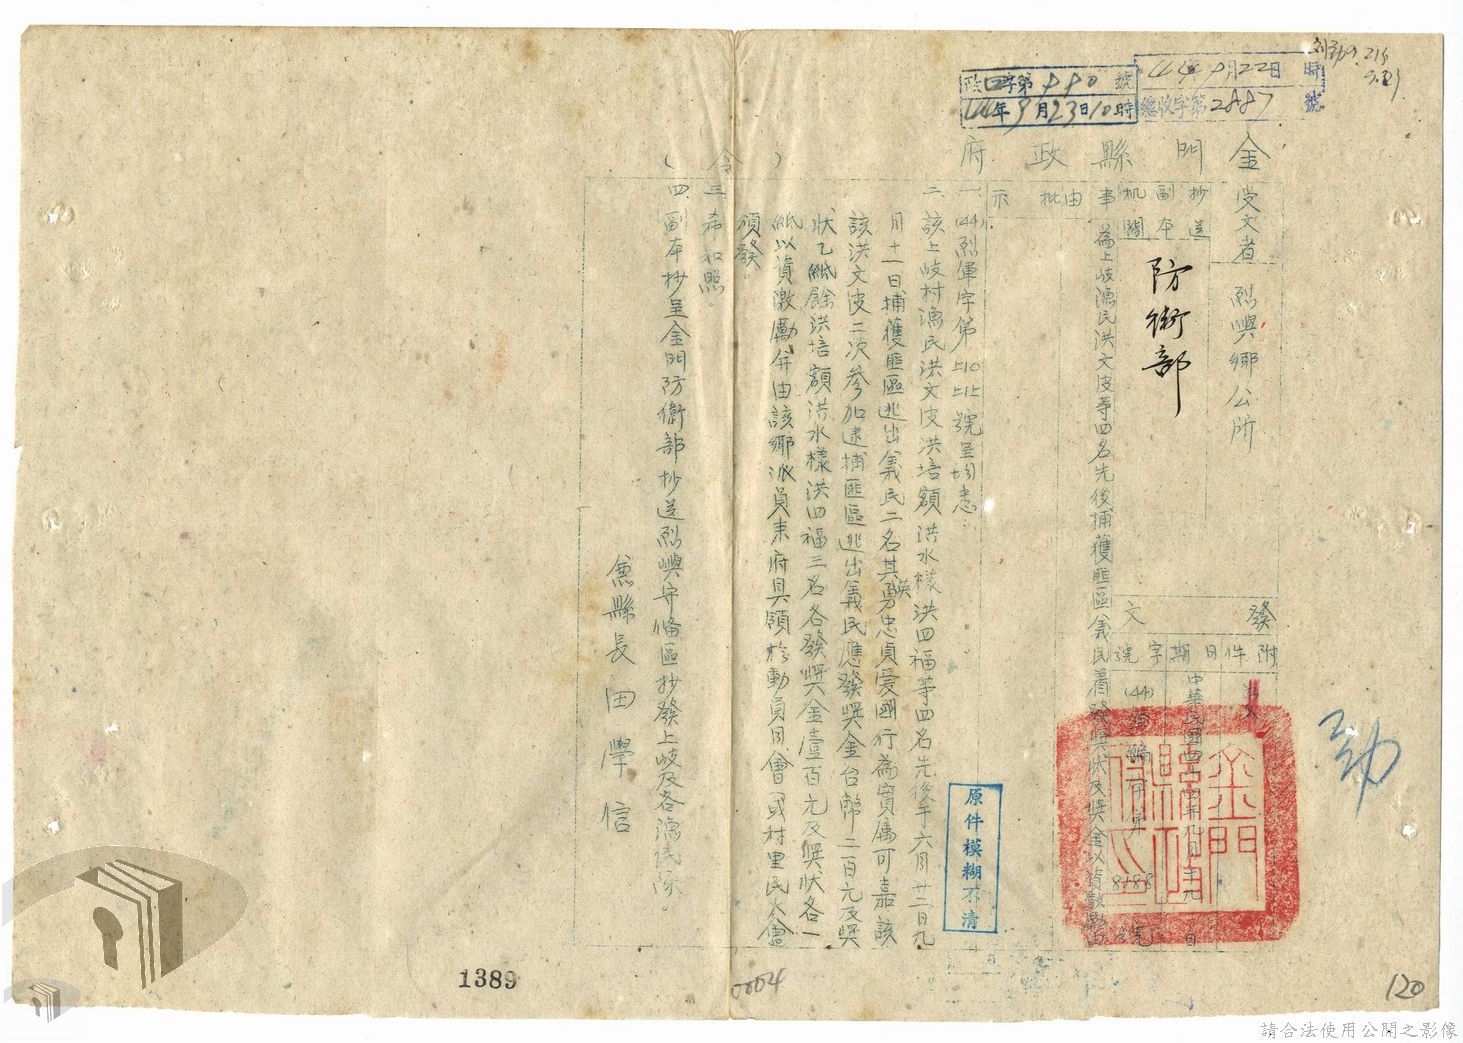 金門縣政府（令）
受文者 烈嶼鄉公所
抄送副本机關
防衛部
發文
附件
日期 中華民國四十四年九月十九日
字號 (44) 8188 號
批示
事由 為上岐漁民洪文皮等四名先後捕獲匪區義民着發獎狀及獎金以資激勵由
一、(44)烈軍字第 號呈均悉。
二、該上岐村漁民洪文皮洪培額洪水樣洪四福等四名先後于六月廿二日九
月十一日捕獲匪區逃出義民二名其英勇忠貞愛國行為實屬可嘉該
該洪文皮二次參加逮捕匪區逃出義民應發獎金台幣二百元及獎
狀乙紙餘洪培額洪水樣洪四福三名各發獎金壹百元及獎狀各一
紙以資激勵并由該鄉派員來府具領於動員月會或村里民大會
頒發。
三、希知照。
四、副本抄呈金門防衛部抄送烈嶼守備區抄發上岐及各漁民隊。
縣長田學信
政字第990號
44年9月23日10時
44年9月22日 時
總收字第2887號
金門縣政府印
原件模糊不清
1389
0004
120
請合法使用公開之影像